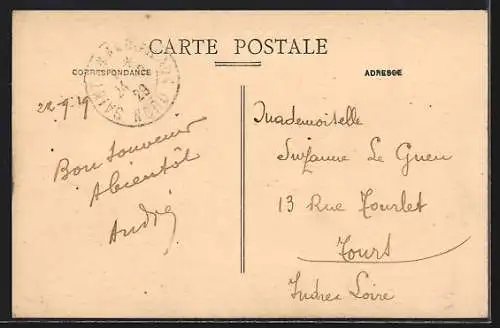 CARTE POSTALE
CORRESPONDANCE
ADRESSE
22-9-29
Bon Souvenir
A bientôt
André
Mademoiselle
Suzanne Le Guen
13 Rue Fourlet
Tours
Indre Loire